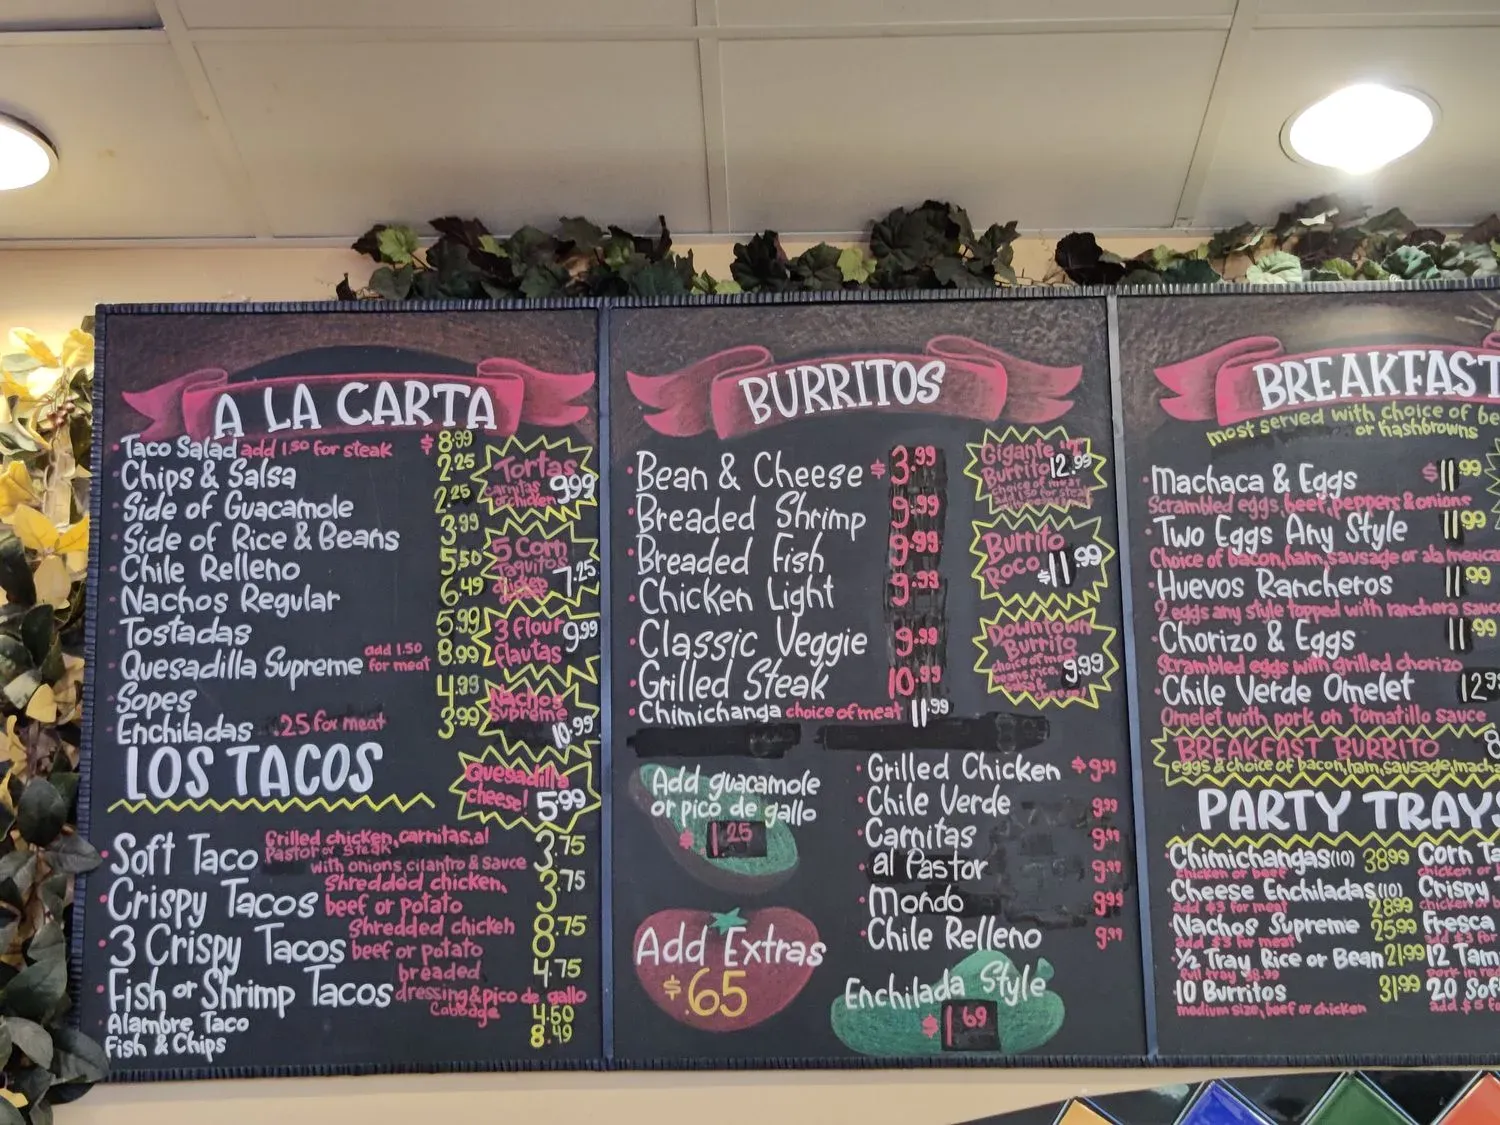 A LA CARTA
Taco Salad add 1.50 for steak $8.99
Chips & Salsa 2.25
Side of Guacamole 2.25
Side of Rice & Beans 3.99
Chile Relleno 5.50
Nachos Regular 6.49
Tostadas 5.99
Quesadilla Supreme add 1.50 for meat 8.99
Sopes 4.99
Enchiladas .25 for meat 3.99
Tortas
carnitas
or chicken
9.99
5 Corn
Taquitos
7.25
3 flour
flautas
9.99
Nachos
Supreme
10.99
Quesadilla
cheese!
5.99
LOS TACOS
Soft Taco Grilled chicken, carnitas, al
Pastor or Steak
with onions cilantro & sauce
3.75
Crispy Tacos Shredded chicken,
beef or potato
3.75
3 Crispy Tacos Shredded chicken
beef or potato
8.75
Fish or Shrimp Tacos breaded
dressing & pico de gallo
Cabbage
4.75
Alambre Taco 4.50
Fish & Chips 8.49
BURRITOS
Bean & Cheese $3.99
Breaded Shrimp 9.99
Breaded Fish 9.99
Chicken Light 9.99
Classic Veggie 9.99
Grilled Steak 10.99
Chimichanga choice of meat 11.99
Gigante
Burrito 12.99
choice of meat
add 1.50 for steak
Burrito
ROCO $11.99
Downtown
Burrito
choice of meat
beans, rice
salsa &
cheese!
9.99
Add guacamole
or pico de gallo
$1.25
Add Extras
$.65
Grilled Chicken $9.99
Chile Verde 9.99
Carnitas 9.99
al Pastor 9.99
Mondo 9.99
Chile Relleno 9.99
Enchilada Style
$1.69
BREAKFAST
most served with choice of be
or hashbrowns
Machaca & Eggs $11.99
Scrambled eggs, beef, peppers & onions
Two Eggs Any Style 11.99
Choice of bacon, ham, sausage or ala mexica
Huevos Rancheros 11.99
2 eggs any style topped with ranchera sauce
Chorizo & Eggs 11.99
Scrambled eggs with grilled chorizo
Chile Verde Omelet 12.99
Omelet with pork on tomatillo sauce
BREAKFAST BURRITO 8
eggs & choice of bacon, ham, sausage, macha
PARTY TRAYS
Chimichangas (10) 38.99
chicken or beef
Cheese Enchiladas (10) 28.99
add $3 for meat
Nachos Supreme 25.99
add $3 for meat
1/2 Tray Rice or Bean 21.99
full tray 38.99
10 Burritos 31.99
medium size, beef or chicken
Corn Ta
chicken or b
Crispy
chicken or b
Fresca
add $3 for
12 Tam
Pork in re
20 Sof
add $5 fo